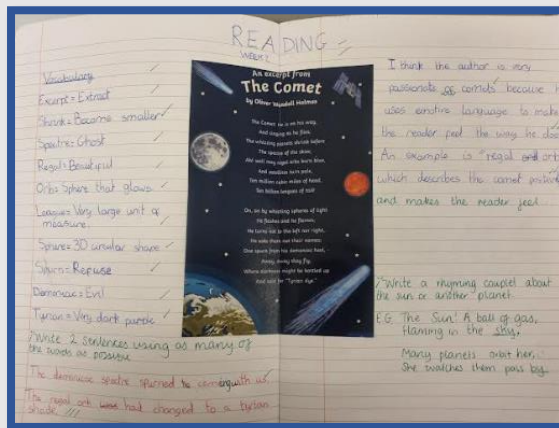 READING
WEEK 2
Vocabulary
Excerpt = Extract
Shrink = Become smaller
Spectre = Ghost
Regal = Beautiful
Orb = Sphere that glows
League = Very large unit of
measure.
Sphere = 3D circular shape
Spurn = Refuse
Demoniac = Evil
Tyrian = Very dark purple
Write 2 sentences using as many of
the words as possible
The demoniac spectre spurned to coming with us.
The regal orb had changed to a tyrian
shade.
An excerpt from
The Comet
by Oliver Wendell Holmes
The Comet! He is on his way,
And singing as he flies;
The whizzing planets shrink before
The spectre of the skies;
Ah! well may regal orbs burn blue,
And satellites turn pale,
Ten million cubic miles of head,
Ten billion leagues of tail!
On, on by whistling spheres of light
He flashes and he flames;
He turns not to the left nor right,
He asks them not their names;
One spurn from his demoniac heel,
Away, away they fly,
Where darkness might be bottled up
And sold for "Tyrian dye."
I think the author is very
passionate of comets because he
uses emotive language to make
the reader feel the way he does.
An example is "regal orbs"
which describes the comet
and makes the reader feel
Write a rhyming couplet about
the sun or another planet.
E.G. The Sun! A ball of gas,
flaming in the sky.
Many planets orbit her,
She watches them pass by.